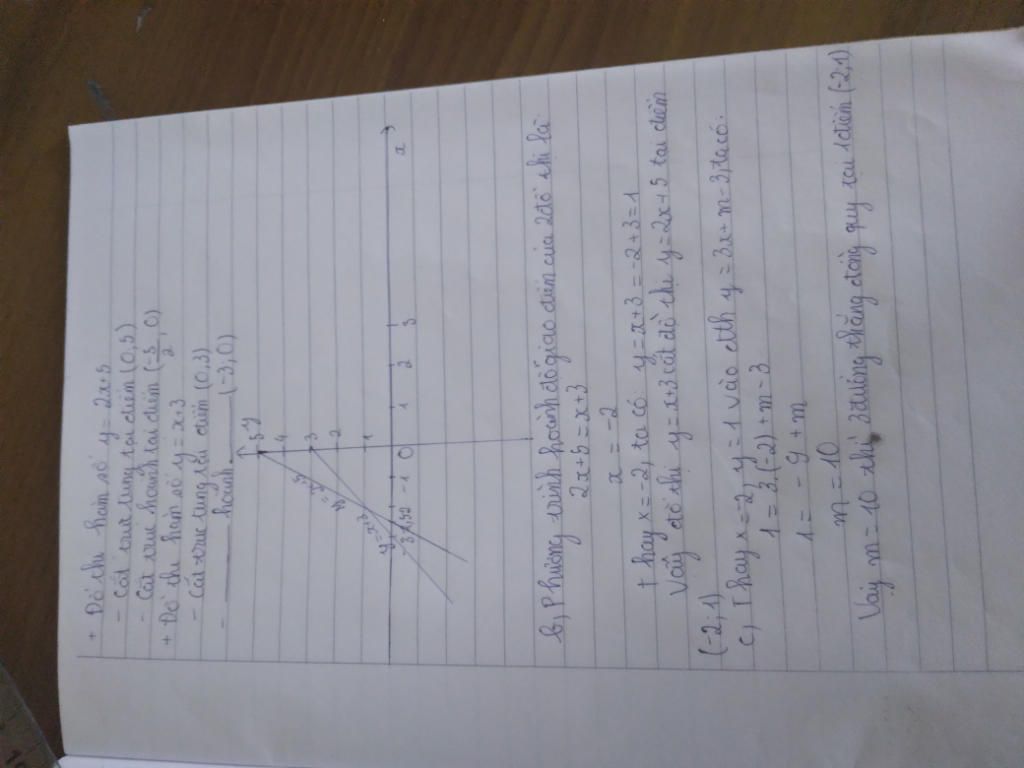 + Đồ thị hàm số y = 2x+5
- Cắt trục tung tại điểm (0,5)
- Cắt trục hoành tại điểm (-5/2, 0)
+ Đồ thị hàm số y = x+3
- Cắt trục tung tại điểm (0,3)
- hoành (-3,0)
y
5
4
3
2
1
-1 0 1 2 3
y=x+3
b, Phương trình hoành độ giao điểm của 2 đồ thị là
2x+5 = x+3
x = -2
+ thay x = -2, ta có: y = x+3 = -2+3 = 1
Vậy đồ thị y = x+3 cắt đồ thị y = 2x+5 tại điểm
(-2;1)
c, Thay x = -2, y = 1 vào đtth y = 3x+m-3, ta có:
1 = 3.(-2) + m-3
1 = -9 + m
m = 10
Vậy m = 10 thì 3 đường thẳng đồng quy tại điểm (-2,1)